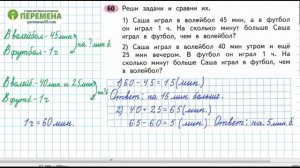 ПЕРЕМЕНА
60 Реши задачи и сравни их.
1) Саша играл в волейбол 45 мин, а в футбол
он играл 1 ч. На сколько минут больше Саша
играл в футбол, чем в волейбол?
2) Саша играл в волейбол 40 мин утром и ещё
25 мин вечером. В футбол он играл 1 ч. На
сколько минут больше Саша играл в футбол,
чем в волейбол?
В волейбол - 45 мин
В футбол - 1 ч
на ? мин б
В волейб - 40 мин и 25 мин
В футб - 1 ч
1 ч = 60 мин.
1) 60 - 45 = 15 (мин.)
Ответ: на 15 мин. больше.
2) 40 + 25 = 65 (мин.)
65 - 60 = 5 (мин.) Ответ: на 5 мин б